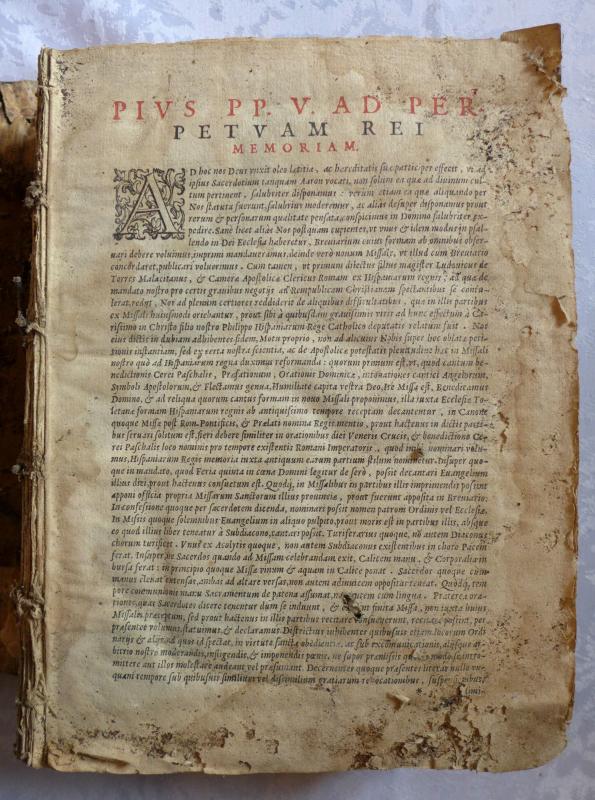 PIVS PP. V. AD PER-
PETVAM REI
MEMORIAM.
AD hoc nos Deus vnxit oleo lætitiæ, ac hereditatis suæ participes effecit, vt ad
ipsius Sacerdotium tanquam Aaron vocati, non solum ea quæ ad diuinum cul-
tum pertinent, salubriter disponamus: verum etiam ea quæ aliquando per
Nos statuta fuerunt, salubrius moderemur, ac aliàs desuper disponamus prout
rerum & personarum qualitate pensata, conspicimus in Domino salubriter expe-
pedire. Sanè licet aliàs Nos postquam cupientes, vt vnus & idem modus in psal-
lendo in Dei Ecclesia haberetur, Breuiarium cuius formam ab omnibus obser-
uari debere voluimus, imprimi mandaueramus, deinde verò nonum Missale, vt illud cum Breuiario
concordaret, publicari voluermus. Cum tamen, vt primum dilectus filius magister Ludouicus de
Torres Malacitanus, & Cameræ Apostolicæ Clericus Romam ex Hispaniarum regnis, ad quæ de
mandato nostro pro certis grauibus negotijs ad Rempublicam Christianam spectantibus se contu-
lerat, redijt, Nos ad plenum certiores reddiderit de aliquibus difficultatibus, quæ in illis partibus
ex Missali huiusmodi oriebantur, prout sibi à quibusdam grauissimis viris ad hunc effectum à Ca-
rissimo in Christo filio nostro Philippo Hispaniarum Rege Catholico deputatis relatum fuit. Nos
eius dictis in dubiam adhibentes fidem, Motu proprio, non ad alicuius Nobis super hoc oblatæ peti-
tionis instantiam, sed ex certa nostra scientia, ac de Apostolicæ potestatis plenitudine hæc in Missali
nostro quò ad Hispaniarum regna duximus reformanda: quorum primum est, vt, quod cantum be-
nedictionis Cerei Paschalis, Præfationum, Orationis Dominicæ, intonationes cantici Angelorum,
Symboli Apostolorum, & Flectamus genua, Humiliate capita vestra Deo, Ite Missa est, Benedicamus
Domino, & ad reliqua quorum cantus formam in nouo Missali proponimus, illa iuxta Ecclesiæ To-
letanæ formam Hispaniarum regnis ab antiquissimo tempore receptam decantentur, in Canone
quoque Missæ post Rom. Pontificis, & Prælati nomina Regis mentio, prout hactenus in dictis parti-
bus seruari solitum est, fieri debere similiter in orationibus diei Veneris Crucis, & benedictione Ce-
rei Paschalis loco nominis pro tempore existentis Romani Imperatoris, quod nominari volu-
mus, Hispaniarum Regis memoria iuxta antiquum earum partium stilum nominetur. Insuper quo-
que in mandato, quod Feria quinta in cœna Domini legitur de serò, possit decantari Euangelium
illius diei, prout hactenus consuetum est. Quodq́, in Missalibus in partibus illis imprimendis possint
apponi officia propria Missarum Sanctorum illius prouinciæ, prout fuerunt apposita in Breuiario.
In confessione quoque per sacerdotem dicenda, nominari possit nomen patrom Ordinis vel Ecclesiæ.
In Missis quoque solemnibus Euangelium in aliquo pulpito, prout moris est in partibus illis, absque
eo quod illius liber teneatur à Subdiacono, cantari possit. Turiferarius quoque, nõ autem Diaconus
chorum turificet. Vnus ex Acolytis quoque, non autem Subdiaconus existentibus in choro Pacem
ferat. Insuper ne Sacerdos quando ad Missam celebrandam exit, Calicem manu, & Corporalia in
bursa ferat: in principio quoque Missæ vinum & aquam in Calice ponat. Sacerdos quoque com-
munes eleuet extensas, ambas ad altare versas, non autem adinuicem oppositas teneat. Quodq́, tem
pore communionis manu Sacramentum de patena assumat, cum lingua. Præterea oratio-
ones, quas Sacerdotes dicere tenentur dum se induunt, & finita Missa, non iuxta huius
Missalis præceptum, sed prout hactenus in illis partibus recitare consueuerunt, recitare possint, per
præsentes volumus, statuimus, & declaramus. Districtius inhibentes quibusuis etiam locorum Ordi
narijs & alijs ad quos id spectat, in virtute sanctæ obedientiæ, ac sub excomunicationis, alijsque ar-
bitrio nostro moderandis, infligendis, & imponendis pœnis, ne super præmissis modo se intro-
mittere aut illos molestare audeant vel præsumant. Decernentes quoque præsentes literas nullo vn-
quam tempore sub quibusuis similium vel dissimilium gratiarum reuocationibus,
limi-